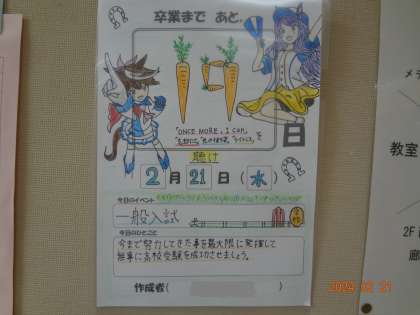 卒業まで あと、
19
日
"ONCE MORE, I CAN,
を
聴け
2月21日(水)
今日のイベント
一般入試
今日のひとこと
今まで努力してきた事を最大限に発揮して
無事に高校受験を成功させましょう。
作成者( )
教室
2F
2024 02 21